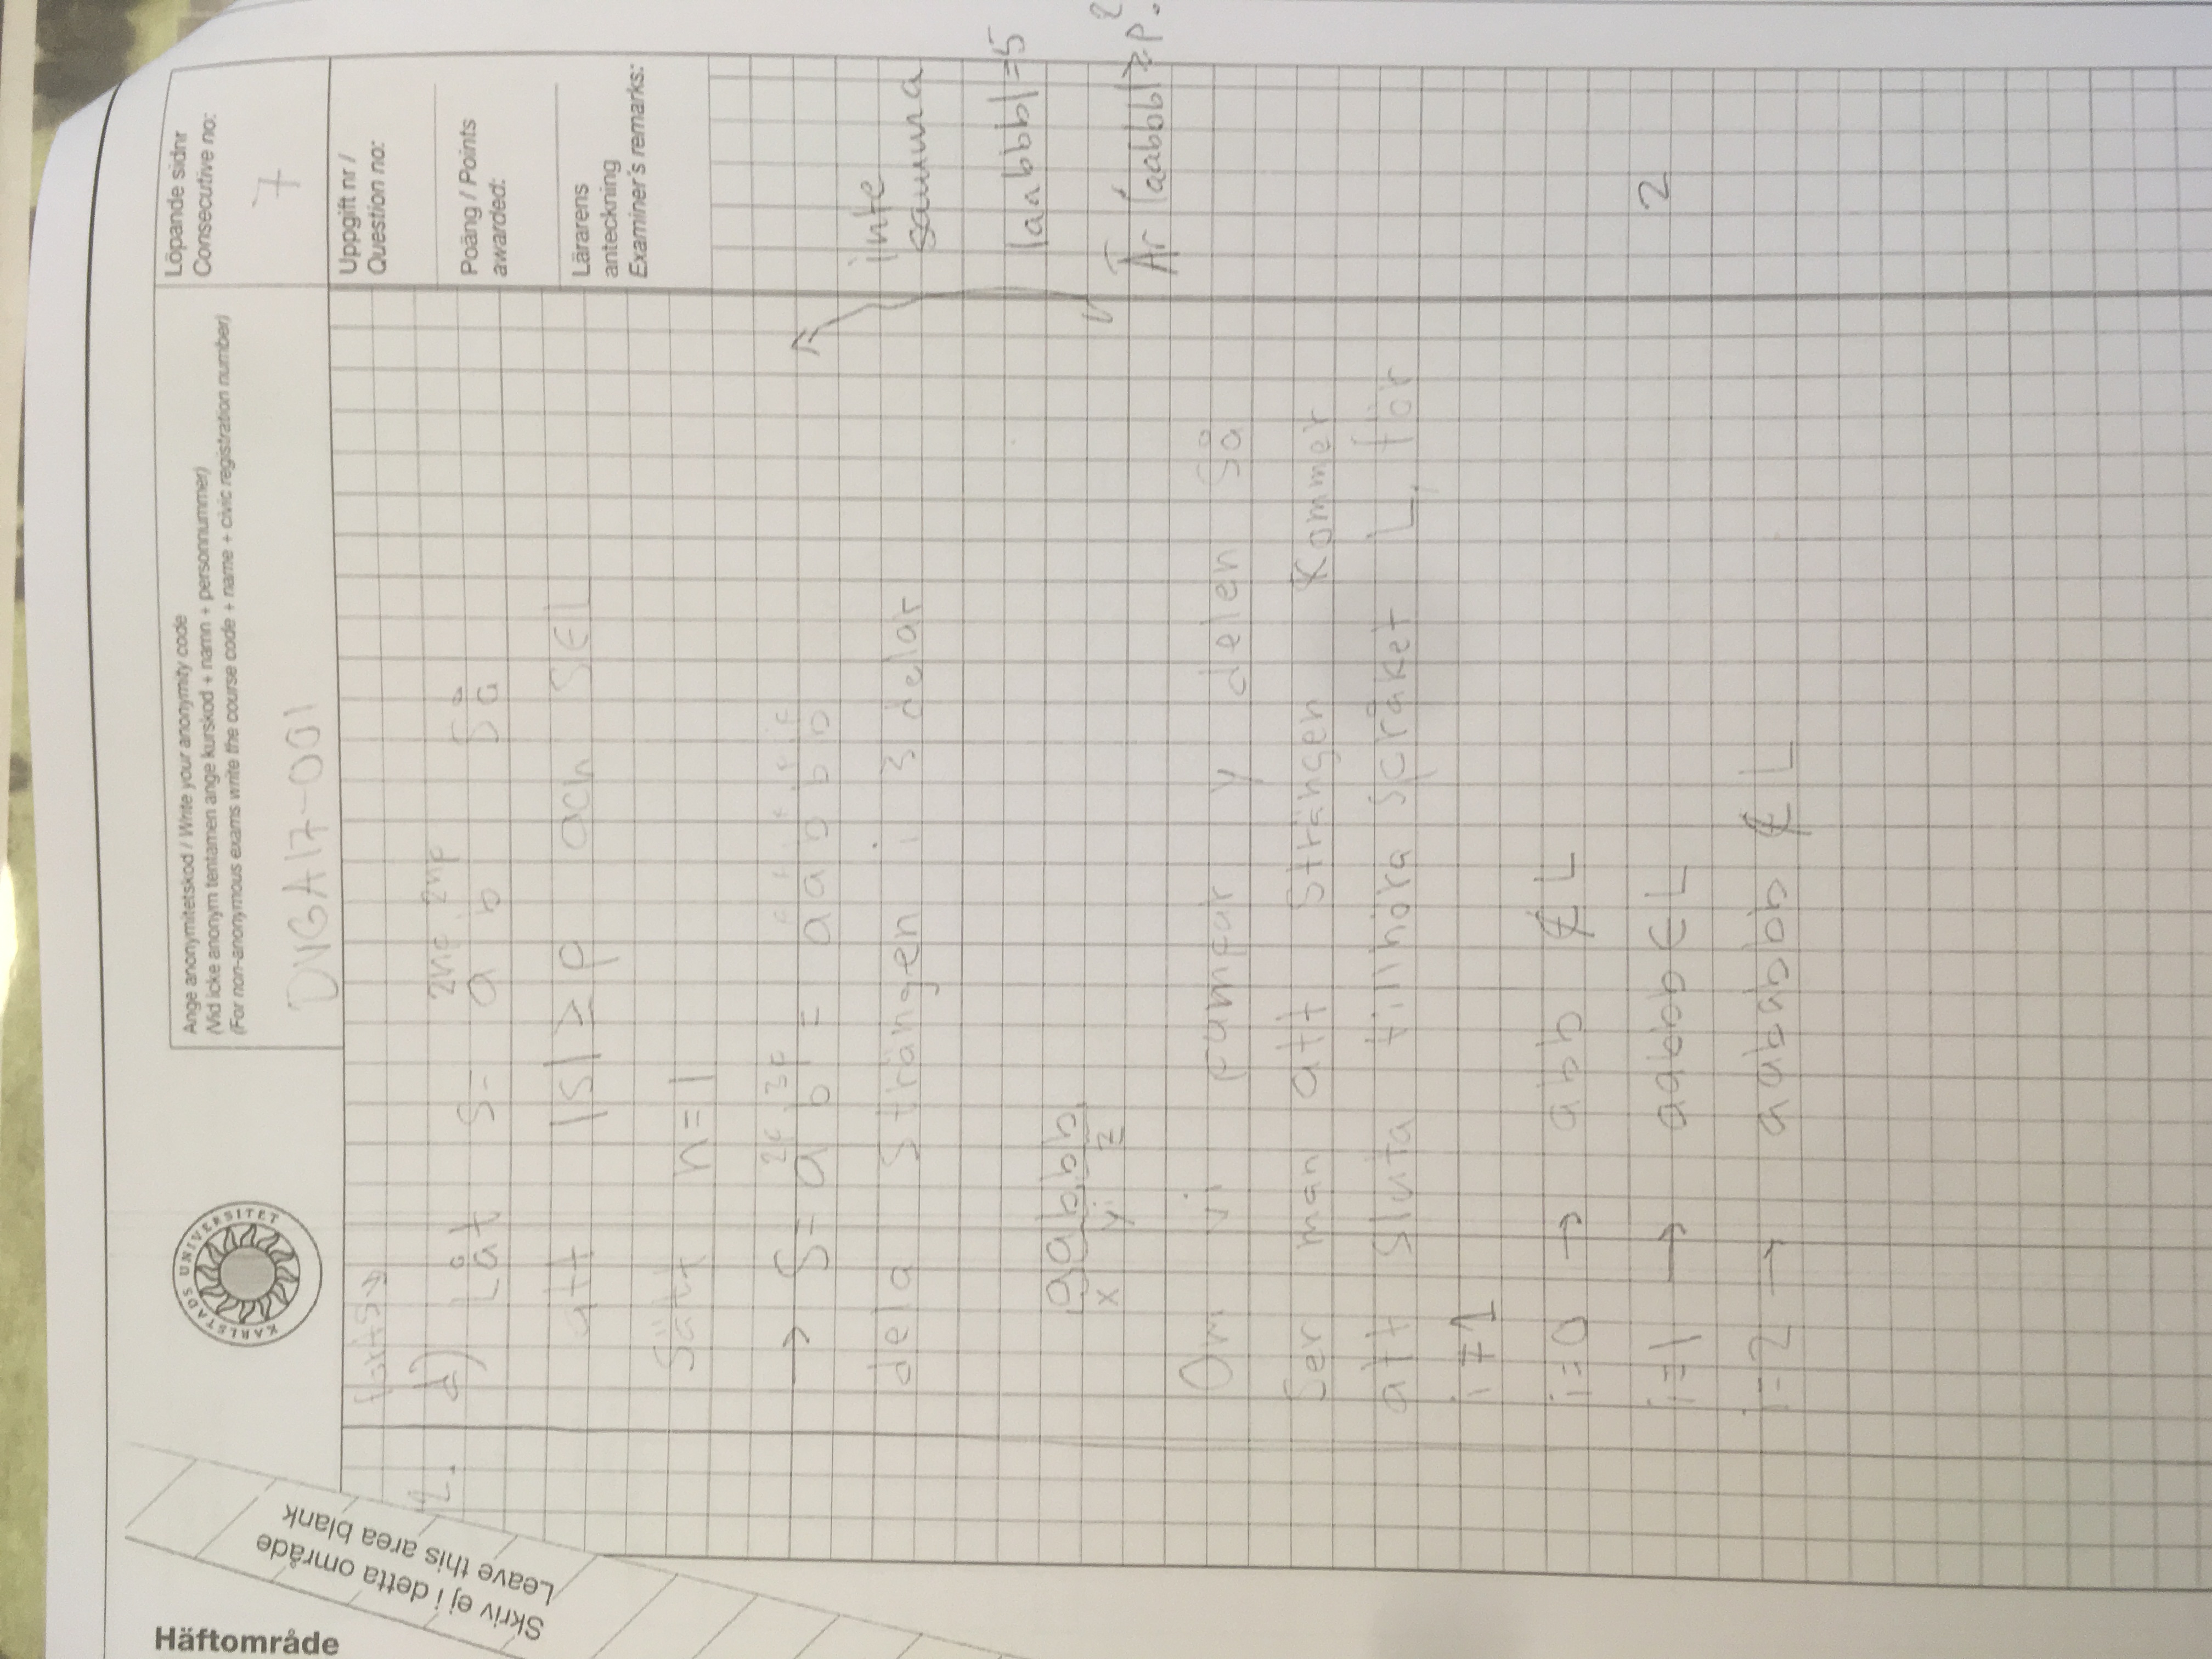 Häftområde
Skriv ej i detta område
Leave this area blank
KARLSTADS UNIVERSITET
Ange anonymitetskod / Write your anonymity code
(Vid icke anonym tentamen ange kurskod + namn + personnummer)
(For non-anonymous exams write the course code + name + civic registration number)
DVGA17-001
Löpande sidnr
Consecutive no:
7
Uppgift nr /
Question no:
Poäng / Points
awarded:
Lärarens
anteckning
Examiner's remarks:
forts
2. d) Låt S= a^2np b^2np Så
att |S| ≥ p och S∈L
Sätt n=1
→ S= a^2p b^3p = a^p a^p b^p b^p b^p
dela Strängen i 3 delar
inte
samma
|aabbb|=5
aabbb
x y^i z
Är |aabbb|≥p?
Om vi pumpar y delen så
Ser man att Strängen Kommer
att sluta tillhöra språket L, för
i≠1
i=0 → abb ∉ L
i=1 → aabbb ∈ L
2
i=2 → aababbb ∉ L